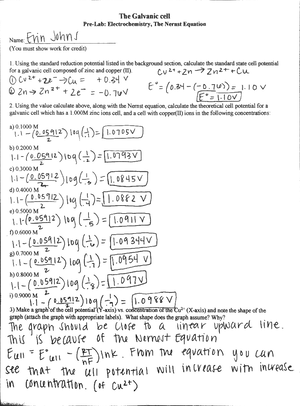 The Galvanic cell
Pre-Lab: Electrochemistry, The Nernst Equation
Name: Erin Johns
(You must show work for credit)
1. Using the standard reduction potential listed in the background section, calculate the standard state cell potential
for a galvanic cell composed of zinc and copper (II).
Cu²⁺ + Zn → Zn²⁺ + Cu
① Cu²⁺ + 2e⁻ → Cu = +0.34 V
② Zn → Zn²⁺ + 2e⁻ = -0.76V
E° = (0.34 - (-0.76)) = 1.10 V
E° = 1.10V
2. Using the value calculate above, along with the Nernst equation, calculate the theoretical cell potential for a
galvanic cell which has a 1.000M zinc ions cell, and a cell with copper(II) ions in the following concentrations:
a) 0.1000 M
1.1 - (0.05912/2) log(1/.1) = 1.0705V
b) 0.2000 M
1.1 - (0.05912/2) log(1/.2) = 1.0793V
c) 0.3000 M
1.1 - (0.05912/2) log(1/.3) = 1.0845V
d) 0.4000 M
1.1 - (0.05912/2) log(1/.4) = 1.0882 V
e) 0.5000 M
1.1 - (0.05912/2) log(1/.5) = 1.0911 V
f) 0.6000 M
1.1 - (0.05912/2) log(1/.6) = 1.09344V
g) 0.7000 M
1.1 - (0.05912/2) log(1/.7) = 1.0954 V
h) 0.8000 M
1.1 - (0.05912/2) log(1/.8) = 1.097V
i) 0.9000 M
1.1 - (0.05912/2) log(1/.9) = 1.0988V
3) Make a graph of the cell potential (Y-axis) vs. concentration of the Cu²⁺ (X-axis) and note the shape of the
graph (attach the graph with appropriate labels). What shape does the graph assume? Why?
The graph should be close to a linear upward line.
This is because of the Nernst Equation
Ecell = E°cell - (RT/nF) lnk. From the equation you can
see that the cell potential will increase with increase
in concentration. (of Cu²⁺)